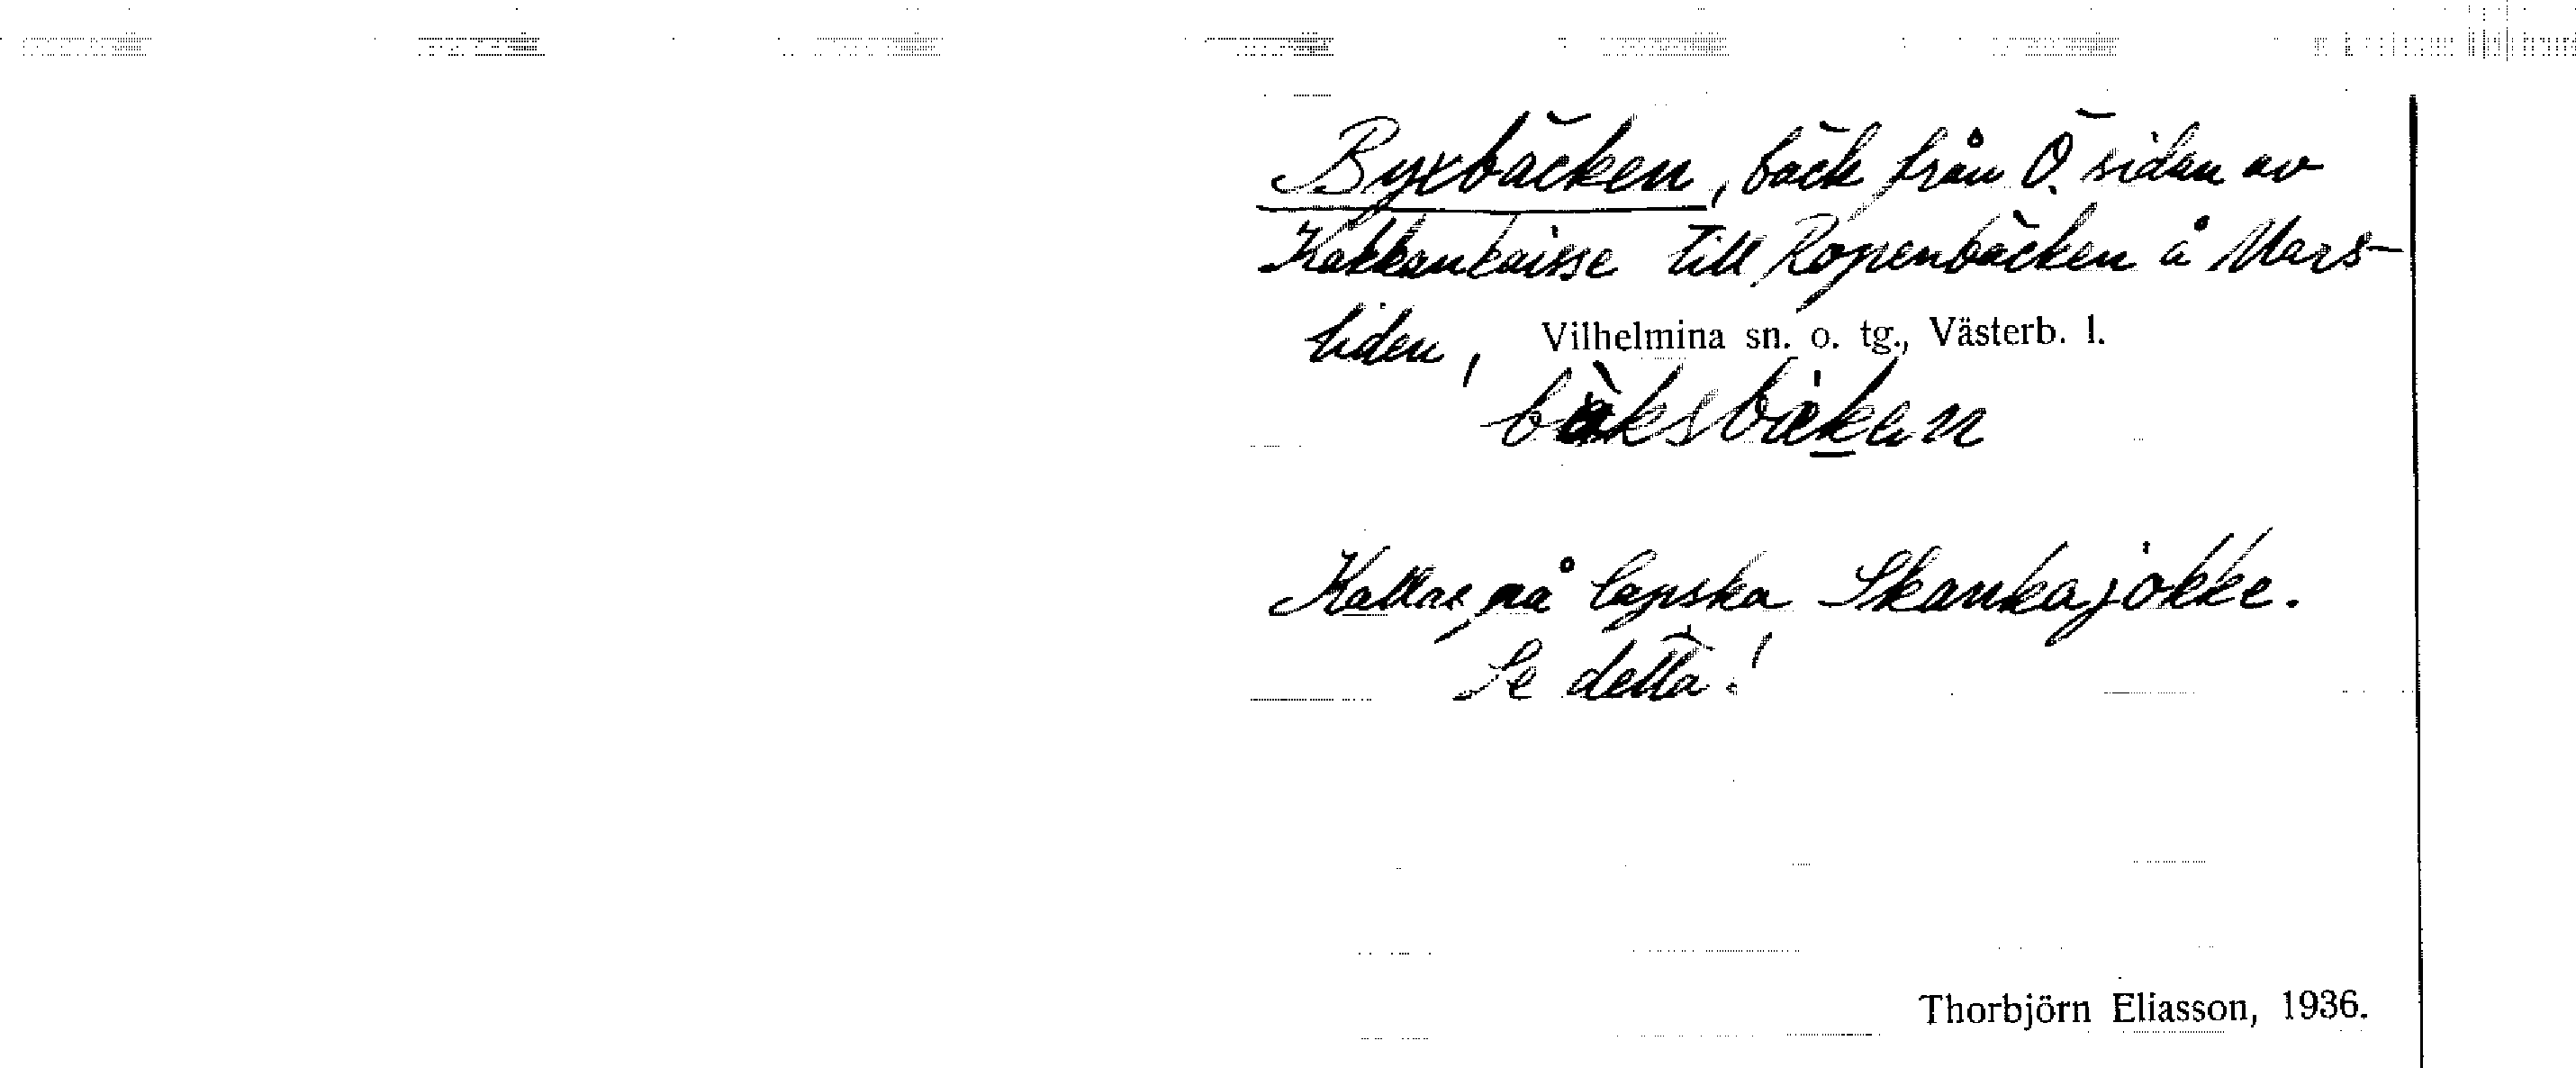 Byxbäcken, bäck från Ö. sidan av
Kakkankaisse till Ropenbäcken å Mars-
liden, Vilhelmina sn. o. tg., Västerb. l.
Kallas på lapska Skankajokke.
Se detta!
Thorbjörn Eliasson, 1936.